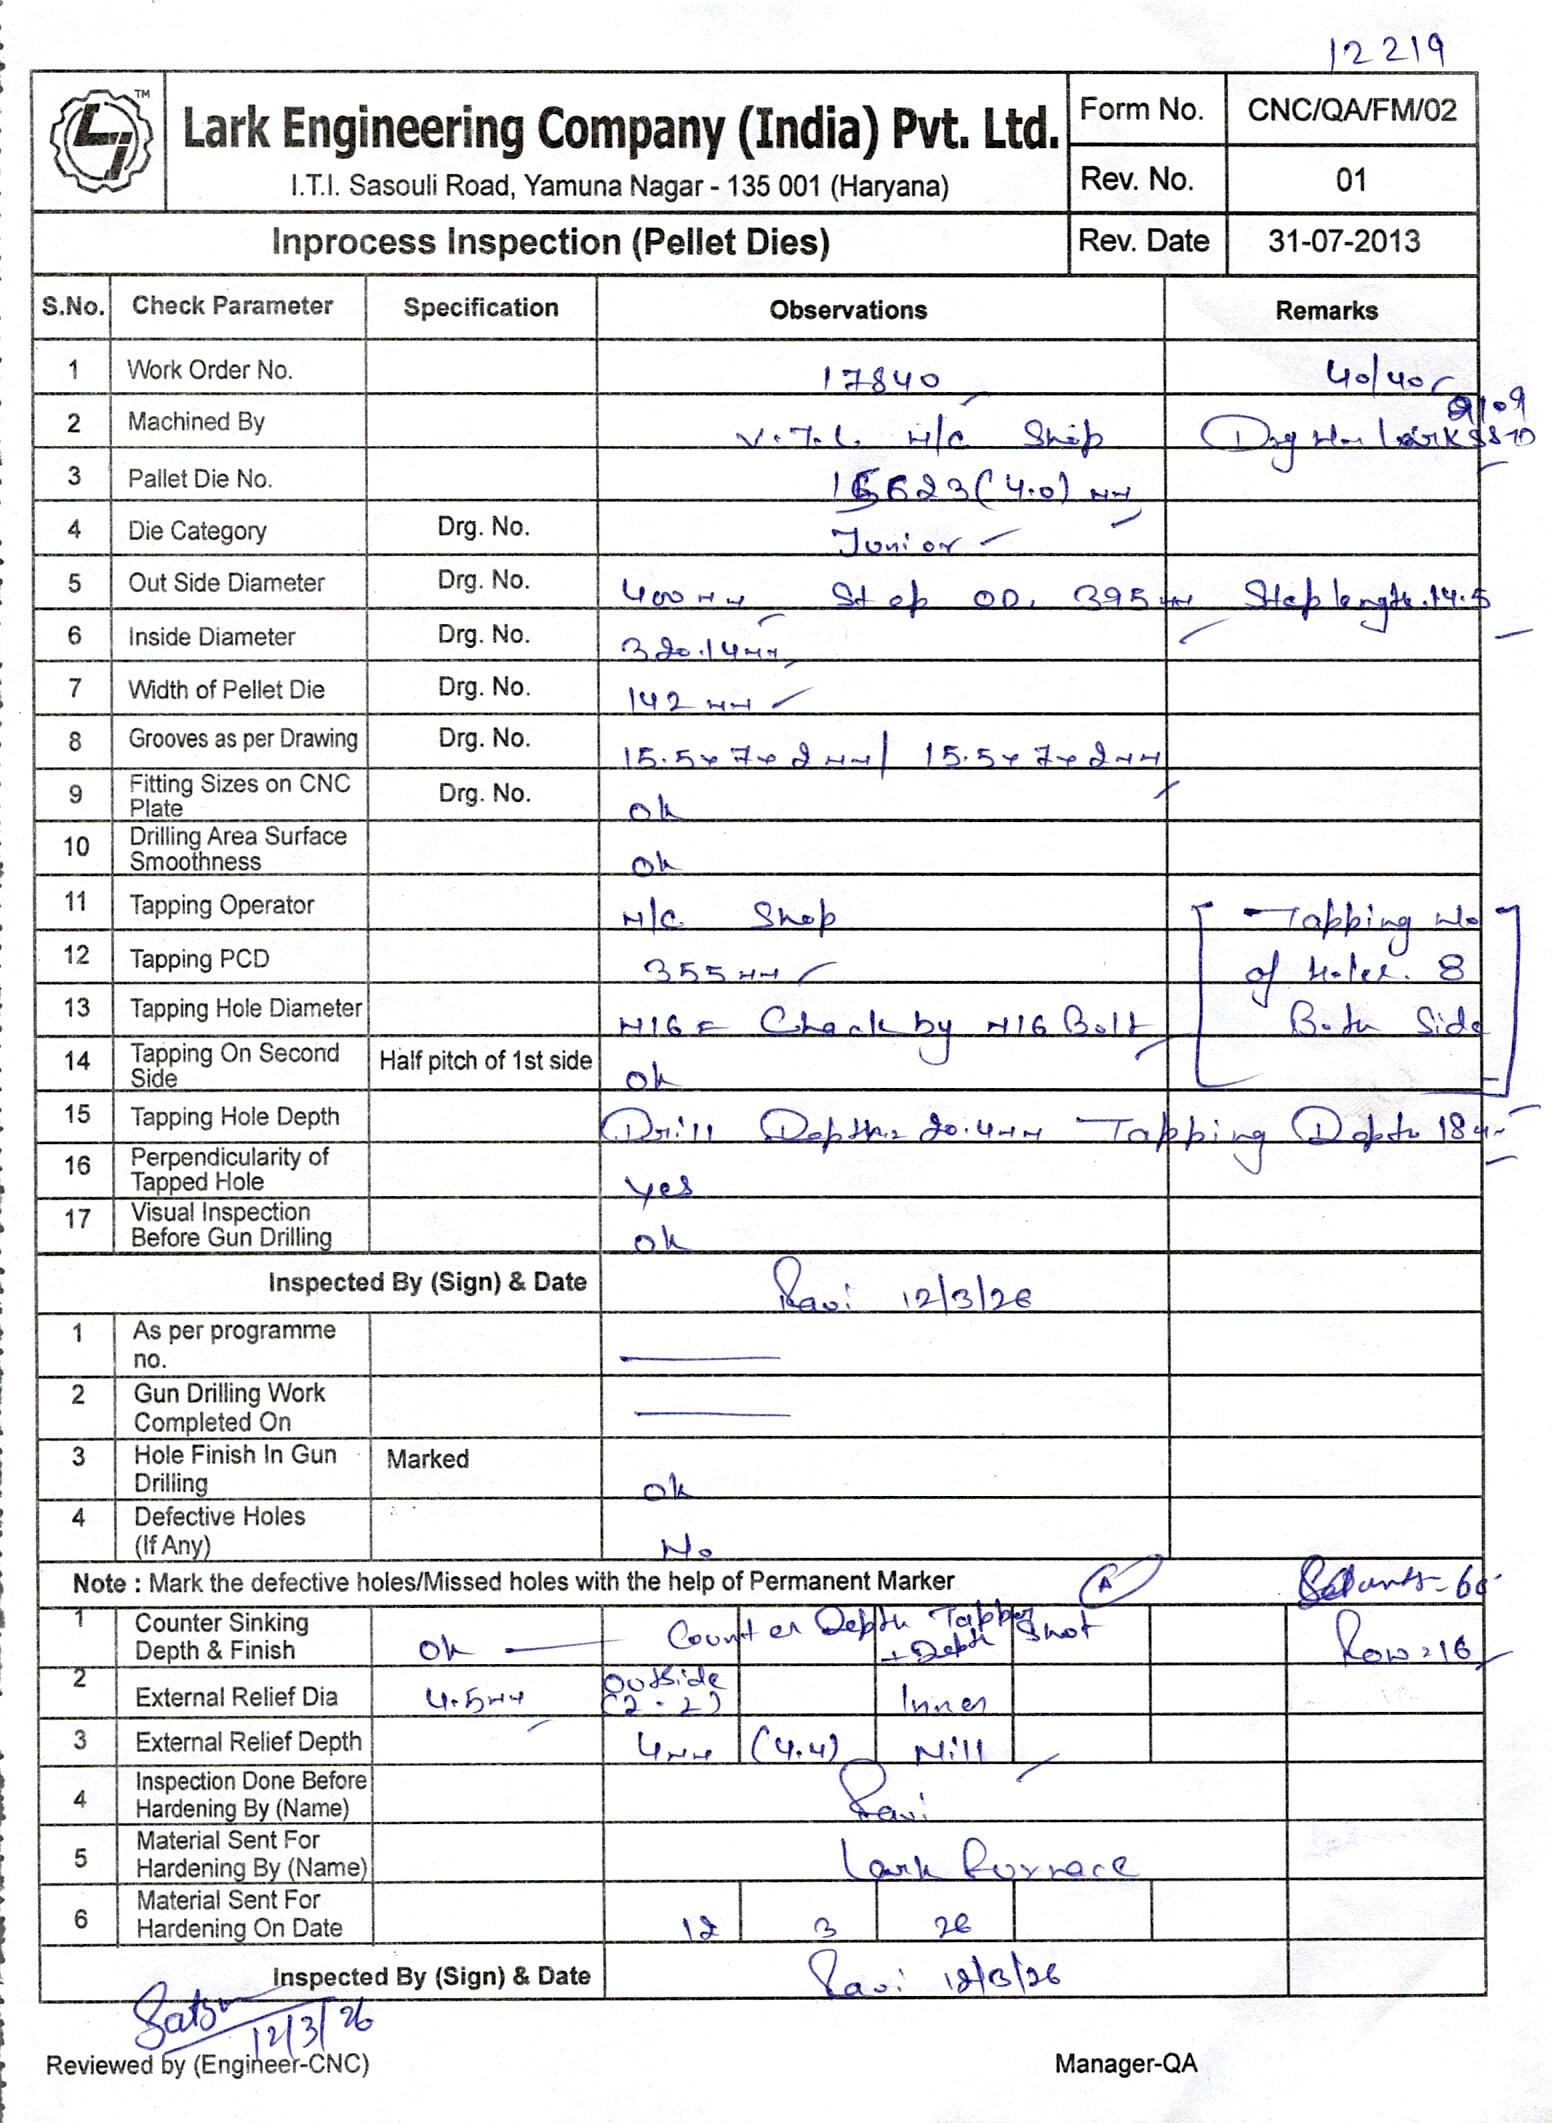 12219
TM
Lark Engineering Company (India) Pvt. Ltd.
I.T.I. Sasouli Road, Yamuna Nagar - 135 001 (Haryana)
Form No. CNC/QA/FM/02
Rev. No. 01
Inprocess Inspection (Pellet Dies) Rev. Date 31-07-2013
S.No. Check Parameter Specification Observations Remarks
1 Work Order No. 17840 40/40
2 Machined By V.T.L. M/C Shop Drg No Lark
3 Pallet Die No. (4.0) mm
4 Die Category Drg. No. Junior
5 Out Side Diameter Drg. No. 400mm Step OD. 395mm Step length. 14.5
6 Inside Diameter Drg. No. 320.14mm
7 Width of Pellet Die Drg. No. 142 mm
8 Grooves as per Drawing Drg. No. 15.5x7x2mm/ 15.5x7x2mm
9 Fitting Sizes on CNC Plate Drg. No. ok
10 Drilling Area Surface Smoothness ok
11 Tapping Operator M/C Shop Tapping No
12 Tapping PCD 355mm of Holes. 8
13 Tapping Hole Diameter M16 = Check by M16 Bolt Both Side
14 Tapping On Second Side Half pitch of 1st side ok
15 Tapping Hole Depth Drill Depth= 20.4mm Tapping Depth 18mm
16 Perpendicularity of Tapped Hole yes
17 Visual Inspection Before Gun Drilling ok
Inspected By (Sign) & Date Ravi 12/3/26
1 As per programme no.
2 Gun Drilling Work Completed On
3 Hole Finish In Gun Drilling Marked ok
4 Defective Holes (If Any) No
Note : Mark the defective holes/Missed holes with the help of Permanent Marker A
1 Counter Sinking Depth & Finish ok Counter Depth + Depth Shot Row=16
2 External Relief Dia 4.5mm Outside (2-2) Inner
3 External Relief Depth 4mm (4.4) Nill
4 Inspection Done Before Hardening By (Name) Ravi
5 Material Sent For Hardening By (Name) Lark Furnace
6 Material Sent For Hardening On Date 12 3 26
Inspected By (Sign) & Date Ravi 12/3/26
12/3/26
Reviewed by (Engineer-CNC) Manager-QA